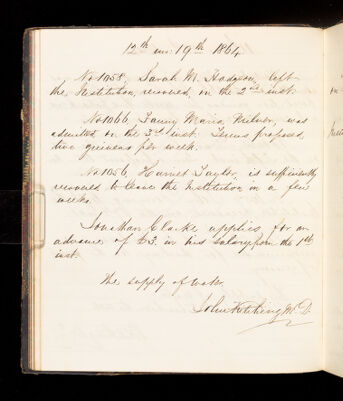 12th mo: 19th 1864
No 1058, Sarah M. Hodgson, left
the Institution, recovered, on the 2nd inst.
No 1066, Fanny Maria Milner, was
admitted on the 3rd inst. Terms proposed,
two guineas per week.
No 1056, Harriet Taylor, is sufficiently
recovered to leave the Institution in a few
weeks.
Jonathan Clarke applies for an
advance of £3. in his salary from the 1st
inst.
The supply of water.
John Kitching M.D.